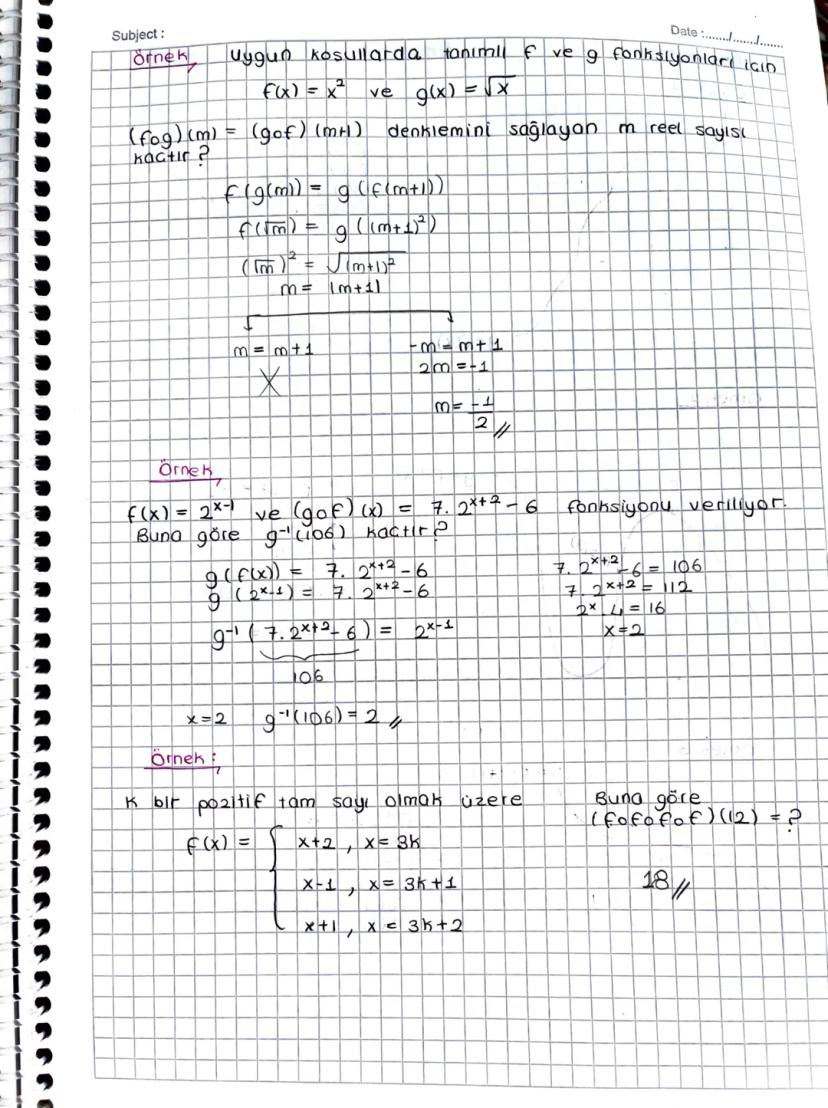 Subject :
Date :......./......./.......
Örnek,
Uygun koşullarda tanımlı f ve g fonksiyonları için
f(x) = x² ve g(x) = √x
(fog)(m) = (gof)(m+1) denklemini sağlayan m reel sayısı
kaçtır ?
f(g(m)) = g(f(m+1))
f(√m) = g((m+1)²)
(√m)² = √(m+1)²
m = |m+1|
m = m+1
-m = m+1
X
2m = -1
m = -1/2 //
Örnek,
f(x) = 2^(x-1) ve (gof)(x) = 7. 2^(x+2) - 6 fonksiyonu veriliyor.
Buna göre g⁻¹(106) kaçtır ?
g(f(x)) = 7. 2^(x+2) - 6
g(2^(x-1)) = 7. 2^(x+2) - 6
g⁻¹(7. 2^(x+2) - 6) = 2^(x-1)
106
x=2 g⁻¹(106) = 2 //
7. 2^(x+2) - 6 = 106
7. 2^(x+2) = 112
2^x . 4 = 16
x=2
Örnek :
K bir pozitif tam sayı olmak üzere
f(x) = { x+2 , x = 3k
x-1 , x = 3k+1
x+1 , x = 3k+2
Buna göre
(fofofof)(12) = ?
18 //